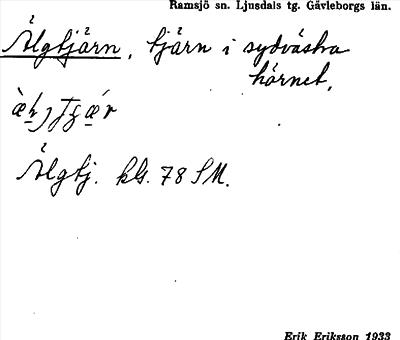 Ramsjö sn. Ljusdals tg. Gävleborgs län.
Älgtjärn, tjärn i sydvästra
hörnet.
Älgtj. kls. 78 SM.
Erik Eriksson 1933